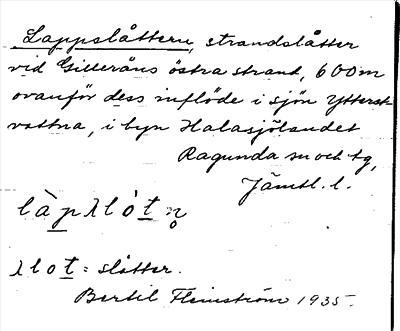 Lappslåttern, strandslåtter
vid Gilleråns östra strand, 600m
ovanför dess inflöde i sjön Ytterst-
vattna, i byn Halasjölandet
Ragunda sn och tg,
Jämtl. l.
làpλlò̀t̲n̥
λlot̲ = slåtter.
Bertil Flemström 1935.